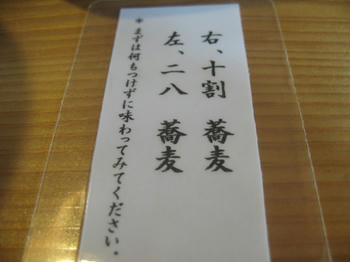 右、十割 蕎麦
左、二八 蕎麦
＊まずは何もつけずに味わってみてください。